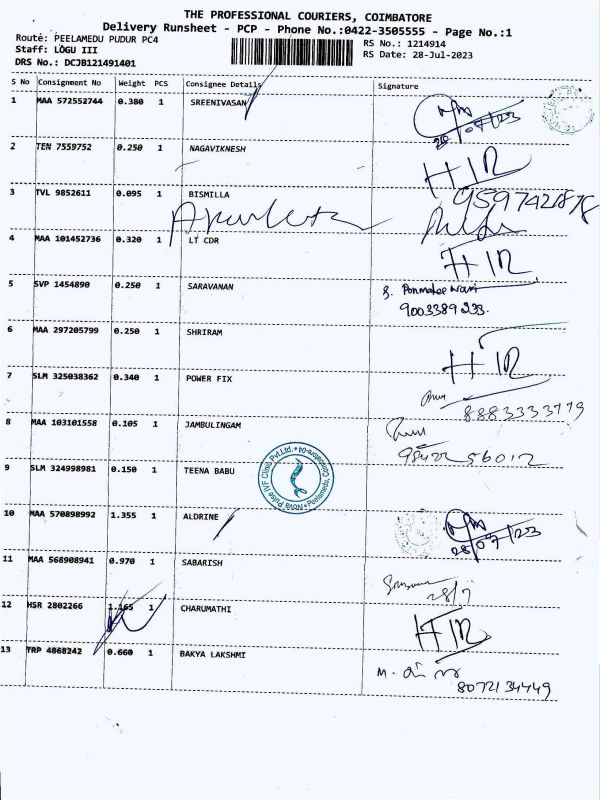 THE PROFESSIONAL COURIERS, COIMBATORE
Delivery Runsheet - PCP - Phone No.:0422-3505555 - Page No.:1
Route: PEELAMEDU PUDUR PC4
RS No.: 1214914
Staff: LOGU III
RS Date: 28-Jul-2023
DRS No.: DCJB121491401
S No Consignment No Weight PCS Consignee Details Signature
1 MAA 572552744 0.380 1 SREENIVASAN
28/07/23
2 TEN 7559752 0.250 1 NAGAVIKNESH
HIR
3 TVL 9852611 0.095 1 BISMILLA
4 MAA 101452736 0.320 1 LT CDR
HIR
5 SVP 1454890 0.250 1 SARAVANAN
9003389233
6 MAA 297205799 0.250 1 SHRIRAM
HIR
7 SLM 325038362 0.340 1 POWER FIX
8883333779
8 MAA 103101558 0.105 1 JAMBULINGAM
98422 56012
9 SLM 324998981 0.150 1 TEENA BABU
Nova Pulse IVF Clinic Pvt.Ltd. * Peelamedu, Coimbatore-04
10 MAA 570898992 1.355 1 ALDRINE
28/07/23
11 MAA 568908941 0.970 1 SABARISH
28/7
12 HSR 2802266 1.165 1 CHARUMATHI
HIR
13 TRP 4868242 0.660 1 BAKYA LAKSHMI
8072134449